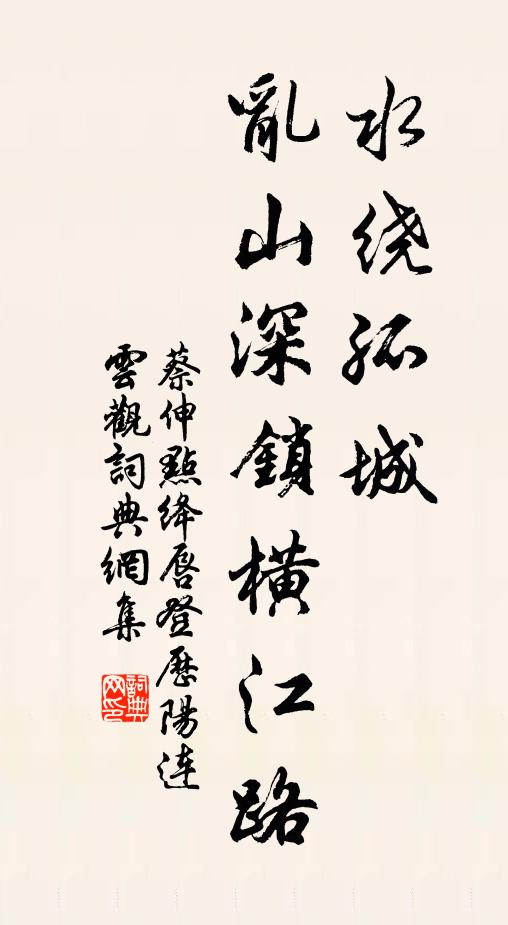 水绕孤城
亂山深鎖橫江路
蔡伸點绛唇登歷陽連
雲觀詞典網集
詞典网印